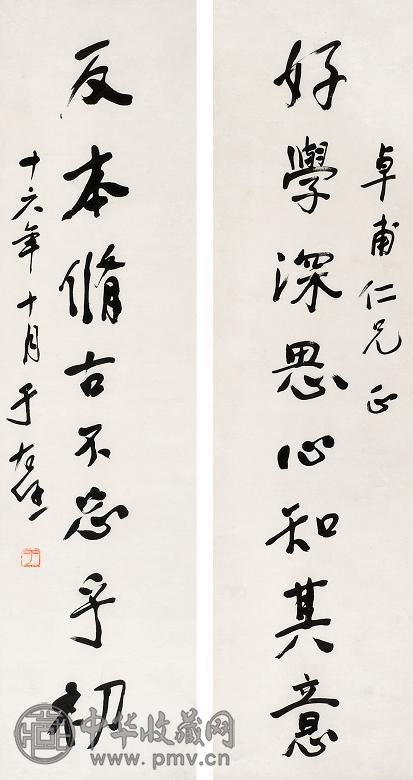 卓甫仁兄正
好學深思心知其意
反本脩古不忘乎初
十六年十月于右任
中华收藏网
www.pmv.cn